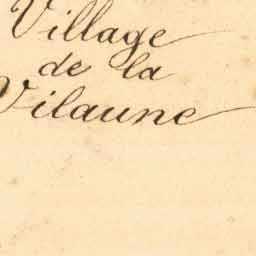 Village
de la
Vilaune